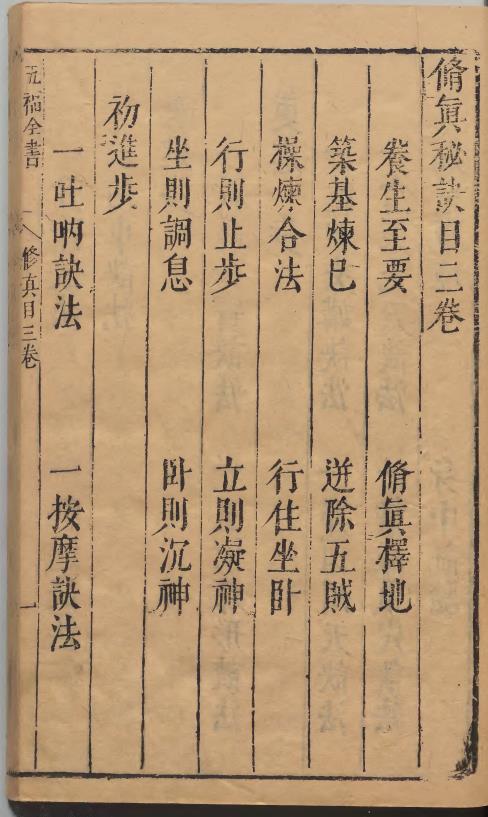 脩眞秘訣目三卷
養生至要　脩眞擇地
築基煉巳　迸除五賊
操煉合法　行住坐卧
行則止步　立則凝神
坐則調息　卧則沉神
初進步
一吐吶訣法　一按摩訣法
五福全書　修真目三卷　一